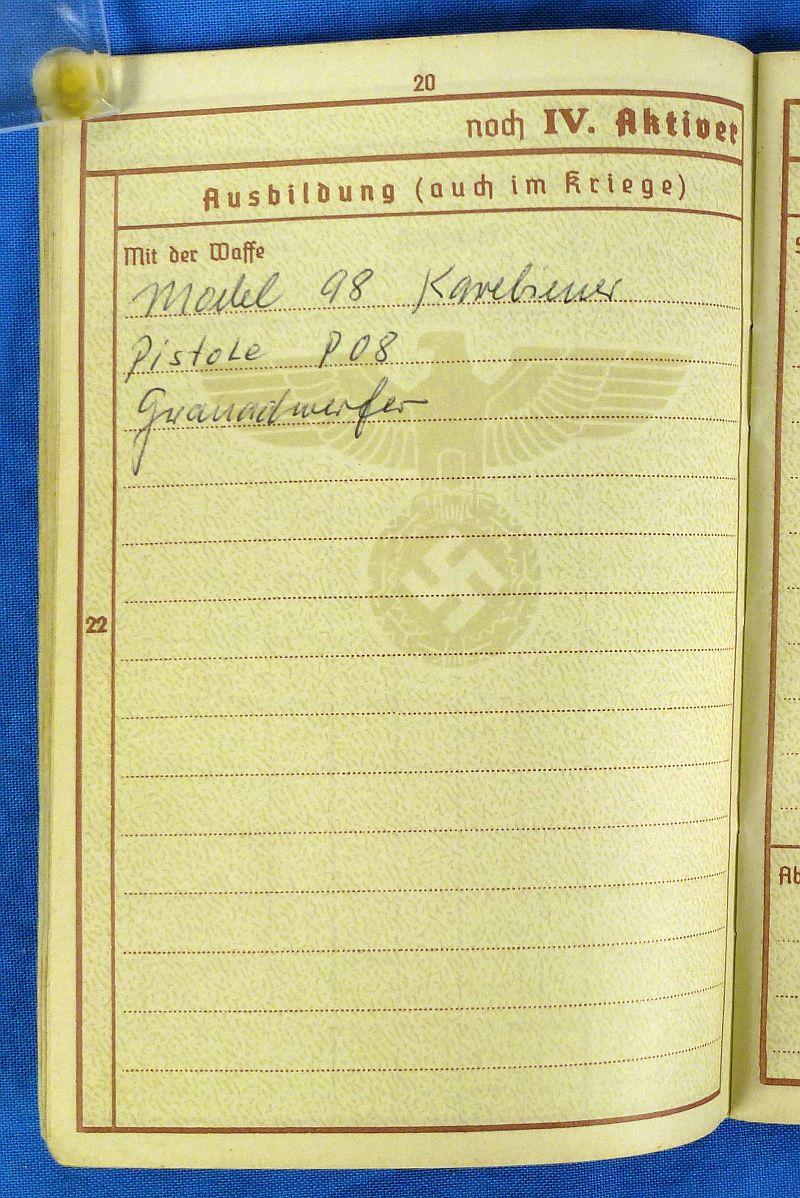 20
noch IV. Aktiver
Ausbildung (auch im Kriege)
Mit der Waffe
Model 98 Karebiener
Pistole P08
Granadwerfer
22
Ab